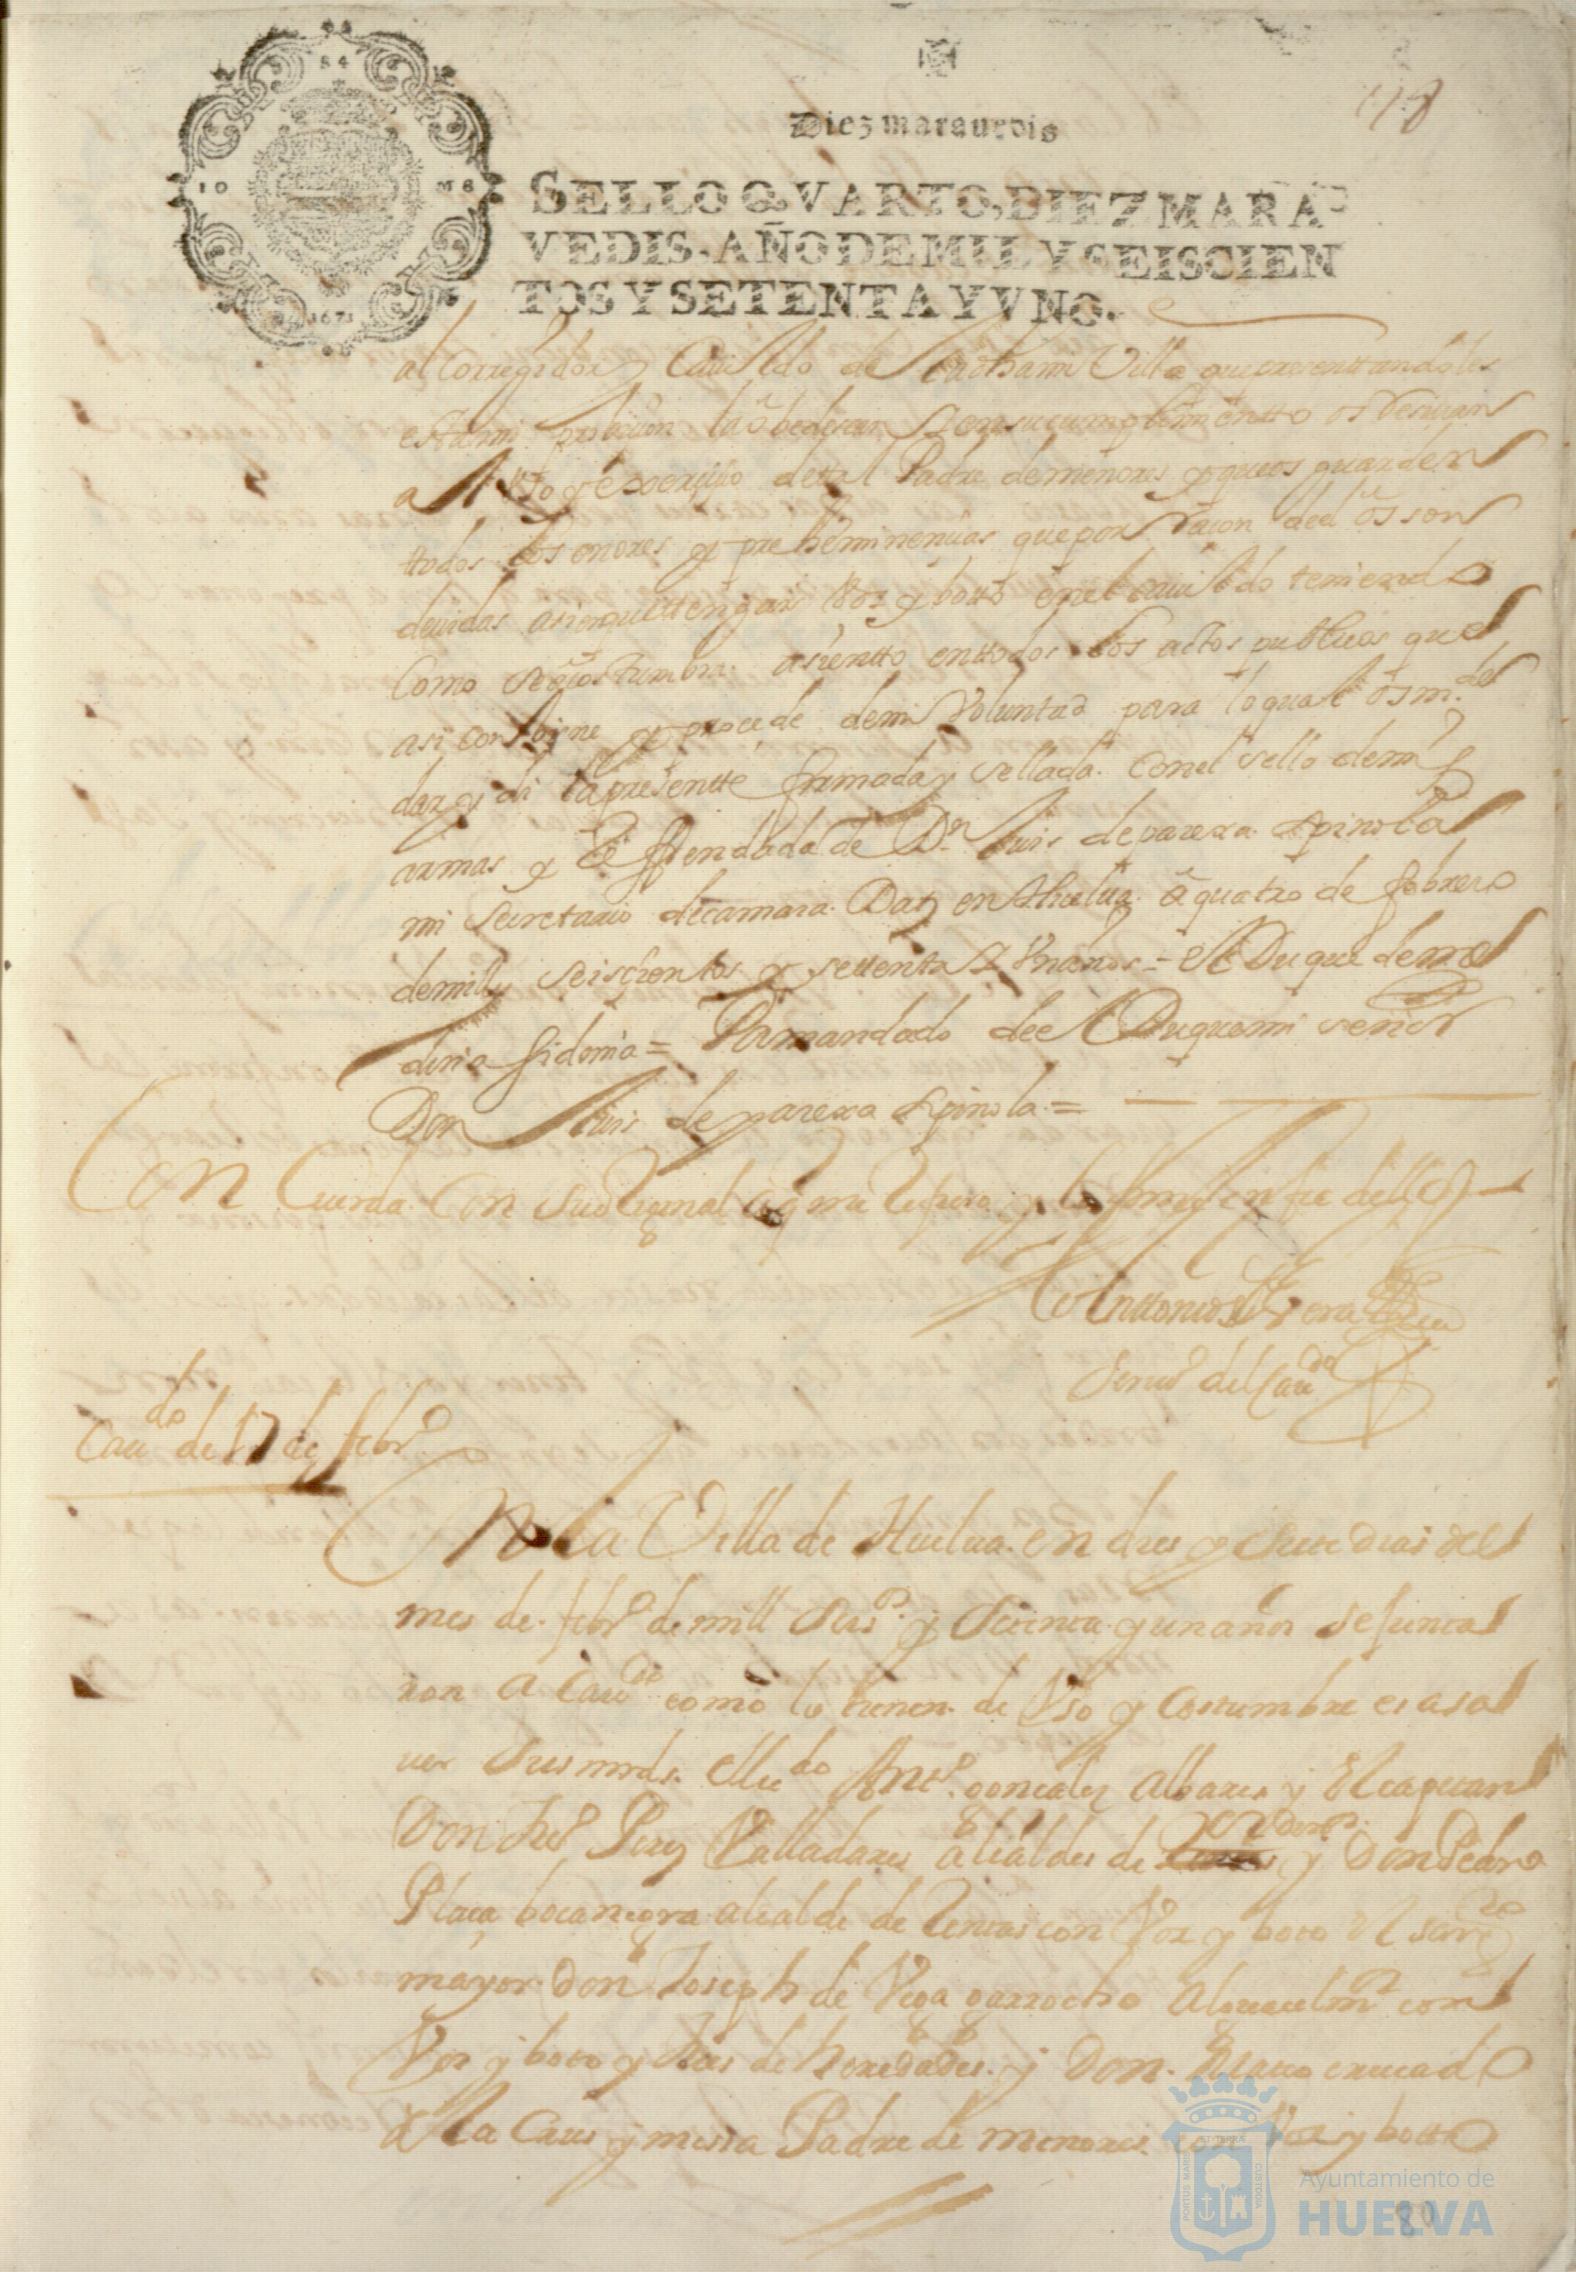 118
Diez maravedis
SELLO QVARTO, DIEZ MARA
VEDIS, AÑO DE MIL Y SEISCIEN
TOS Y SETENTA Y VNO.
84
10 MS
1671
al corregidor y Cauildo de la dha mi Villa que presenttandoles
esta mi la obedescan y en su cumplimientto os resiuan
a Vsso y exoersiçio de tal Padre de menores y que os guarden
ttodos los onores y preheminencias que por raçon del ôs son
deuidas asi en que ttengais Voz y botto en el cauildo teniendo
Como se acostumbra asientto enttodos los actos publicos que
asi conbiene y procede de mi Voluntad para lo qual ôs m.de
dar y di la presentte firmada y sellada con el sello de mis
armas y Reffrendada de Dn Luis de parexa Spinola
mi secretario de camara. Dat en Huelua â quatro de febrero
de mill y seiscientos y settenta y Vn años = el Duque de me
dina sidonia = Por mandado del Duque mi señor
Don Luis de parexa Spinola =
Con Cuerda Con su original a q me refiero y lo firme en fee dello
Anttonio de Vera
Scriuo del Cauдо
Caudo de 17 de febro
En la Villa de Huelua en dies y siete dias del
mes de febro de mill seisos y setenta y un años se junta
ron a Caudo como lo tienen de Vso y costumbre es a sa
uer sus mrds. el Licdo Anto gonçales Albares y El capitan
Don Juo Perez Valladares alcaldes de ordinos y Don Pedro
Plaça bocanegra alcalde de Tercias con Voz y boto El sargto
mayor don Joseph de Vega garrocho alguacil mor con
Voz y boto y Jues de heredades y Don Mateo cruçado
de la Crus y mesia Padre de menores con Voz y botto
80
PORTUS MARIS ET TERRÆ CUSTODIA
Ayuntamiento de
HUELVA